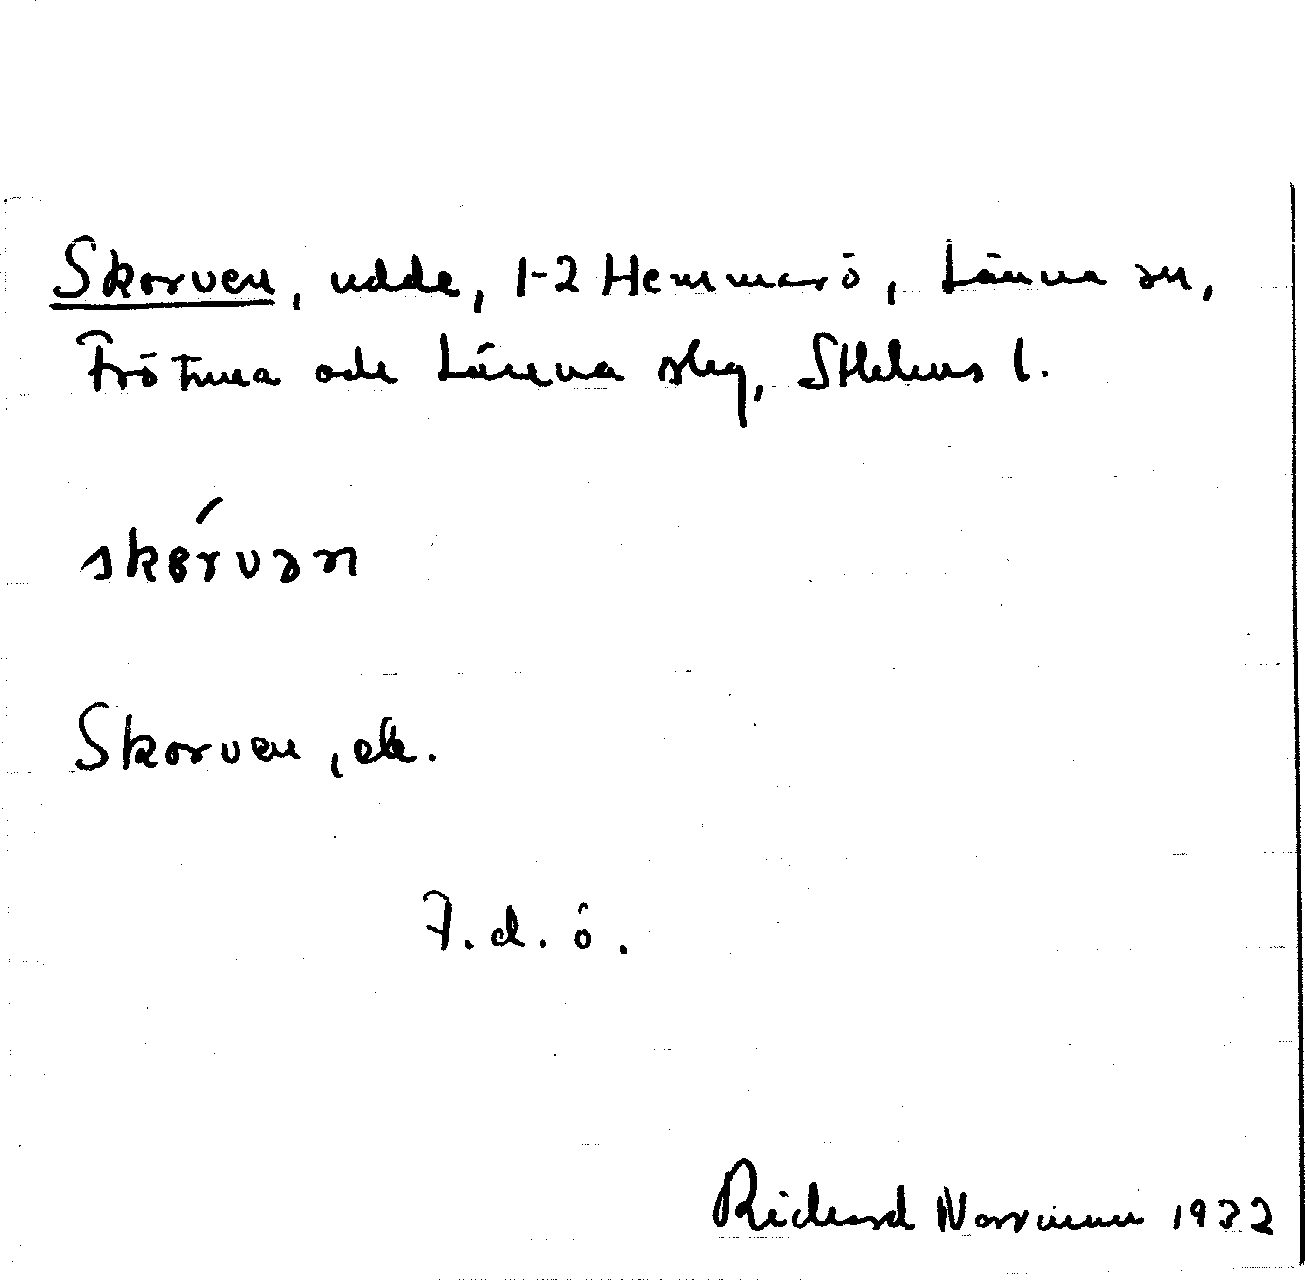 Skorven, udde, 1-2 Hemmarö, Länna sn,
Frötuna och Länna slg, Sthlms l.
skɵ́rvan
Skorven, ek.
F.d.ö.
Richard Norrman 1932